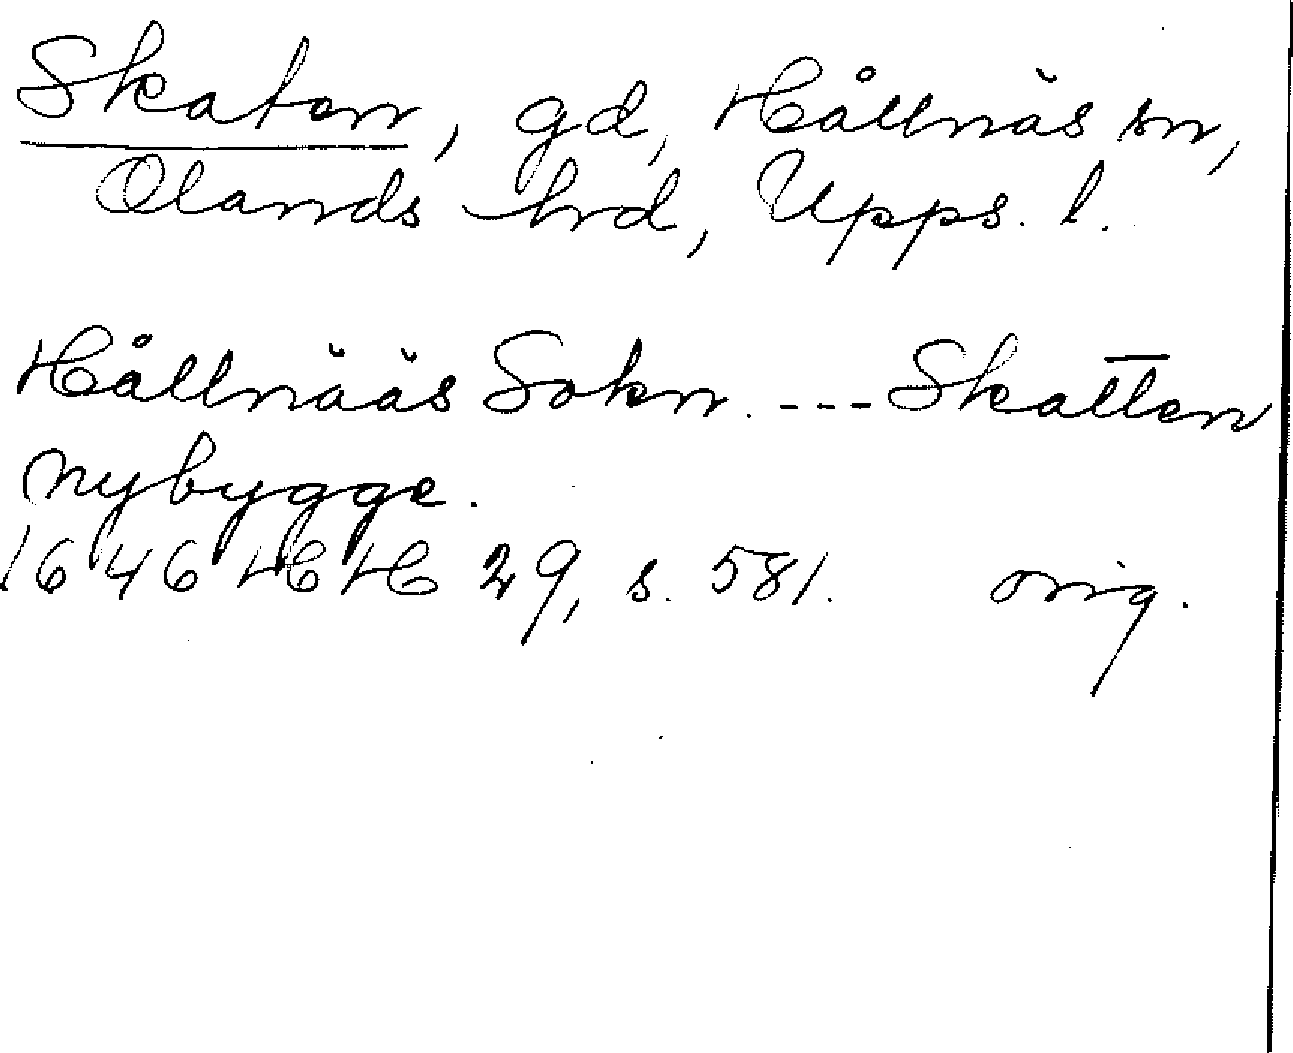 Skaten, gd, Hållnäs sn,
Olands hrd, Upps. l.
Hållnääs Sokn. --- Skatten
nybygge.
1646 HH 29, s. 581. orig.